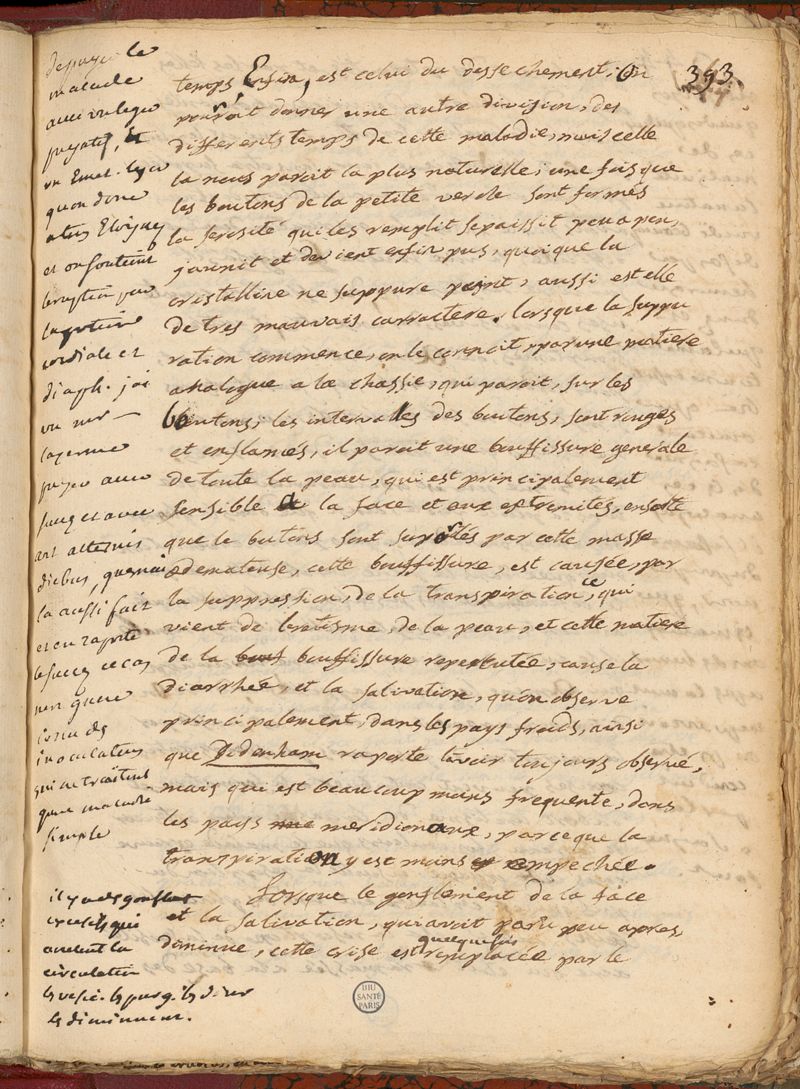 393.
temps Enfin, est celui du dessechement; on
pouroit donner une autre division, des
differents temps de cette maladie, mais celle
la nous paroit la plus naturelle; une fois que
les boutons de la petite verole sont formés
la serosité qui les remplit sepaissit peu a peu,
jaunit et devient enfin pus, quoique la
cristalline ne suppure point, aussi est elle
de tres mauvais carractere. lorsque la suppu
ration commence, on le connoit, par une matiere
analogue a la chassie, qui paroit, sur les
boutons; les intervalles des boutons, sont rouges
et enflamés, il paroit une bouffissure generale
de toute la peau, qui est principalement
sensible a la face et aux extremités, ensorte
que le butons sont suportés par cette masse
œdemateuse, cette bouffissure, est causée, par
la suppression, de la transpiration, ce qui
vient de leretisme, de la peau, et cette matiere
de la bouffissure repercutée, cause la
diarrhée, et la salivation, quon observe
principalement, dans les pays froids, ainsi
que Didenham raporte lavoir toujours observé,
mais qui est beaucoup moins frequente, dans
les pays meridionaux, parceque la
transpiration y est moins empechée.
lorsque le gonflement de la face
et la salivation, qui avoit paru peu apres,
diminue, cette crise est quelquefois remplacée par le
le
malade
avec un leger
purgatif, et
un Emet.
quon donne
et on soutient
leruption par
cordiale et
diaph. jai
vu mr
avec
sang et avec
diebus, quenai
la aussi fait
et en raporte
le succes ce cas
nen guere
connu des
inoculateurs
qui ne traitent
quune maladie
simple
il y a des gonflem
excessifs qui
arretent la
circulation
les vesic. les purg. les diur
les diminuent.
BIU
SANTÉ
PARIS